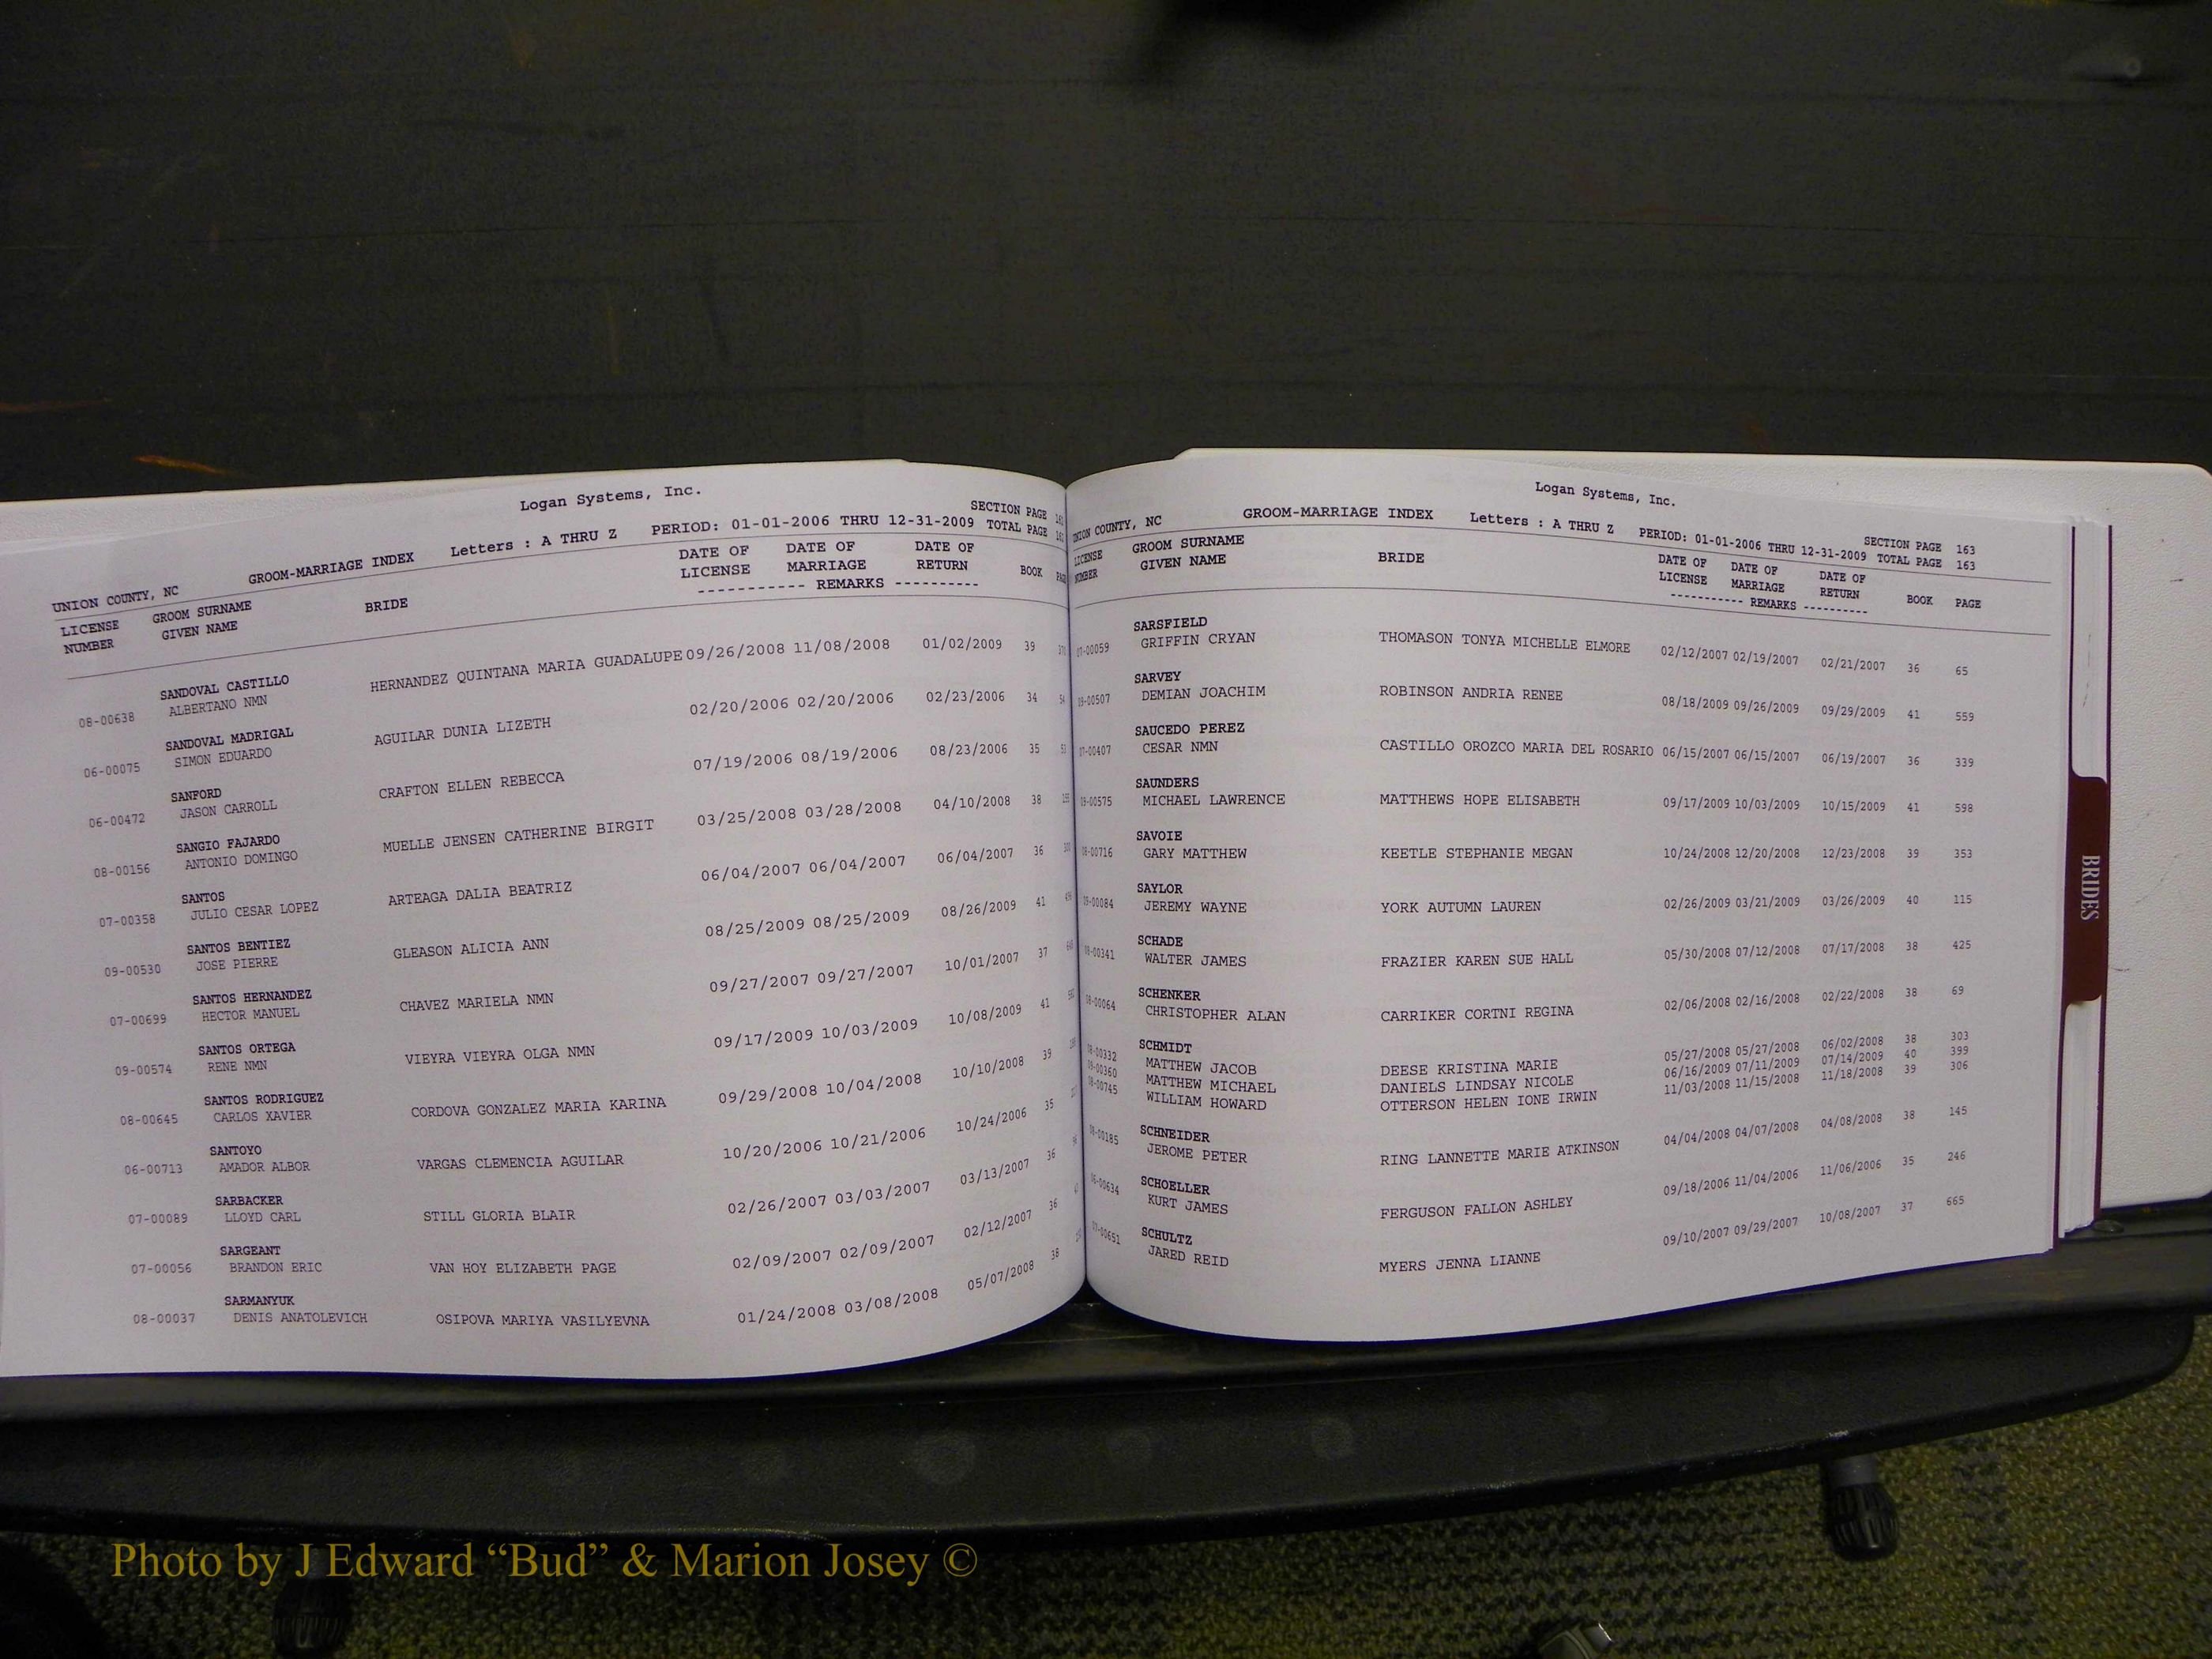 Logan Systems, Inc.
UNION COUNTY, NC GROOM-MARRIAGE INDEX Letters : A THRU Z PERIOD: 01-01-2006 THRU 12-31-2009 SECTION PAGE
TOTAL PAGE
LICENSE NUMBER GROOM SURNAME GIVEN NAME BRIDE DATE OF LICENSE DATE OF MARRIAGE DATE OF RETURN BOOK
----------- REMARKS ----------
SANDOVAL CASTILLO
08-00638 ALBERTANO NMN HERNANDEZ QUINTANA MARIA GUADALUPE 09/26/2008 11/08/2008 01/02/2009 39
SANDOVAL MADRIGAL
06-00075 SIMON EDUARDO AGUILAR DUNIA LIZETH 02/20/2006 02/20/2006 02/23/2006 34
SANFORD
06-00472 JASON CARROLL CRAFTON ELLEN REBECCA 07/19/2006 08/19/2006 08/23/2006 35
SANGIO FAJARDO
08-00156 ANTONIO DOMINGO MUELLE JENSEN CATHERINE BIRGIT 03/25/2008 03/28/2008 04/10/2008 38
SANTOS
07-00358 JULIO CESAR LOPEZ ARTEAGA DALIA BEATRIZ 06/04/2007 06/04/2007 06/04/2007 36
SANTOS BENTIEZ
09-00530 JOSE PIERRE GLEASON ALICIA ANN 08/25/2009 08/25/2009 08/26/2009 41
SANTOS HERNANDEZ
07-00699 HECTOR MANUEL CHAVEZ MARIELA NMN 09/27/2007 09/27/2007 10/01/2007 37
SANTOS ORTEGA
09-00574 RENE NMN VIEYRA VIEYRA OLGA NMN 09/17/2009 10/03/2009 10/08/2009 41
SANTOS RODRIGUEZ
08-00645 CARLOS XAVIER CORDOVA GONZALEZ MARIA KARINA 09/29/2008 10/04/2008 10/10/2008 39
SANTOYO
06-00713 AMADOR ALBOR VARGAS CLEMENCIA AGUILAR 10/20/2006 10/21/2006 10/24/2006 35
SARBACKER
07-00089 LLOYD CARL STILL GLORIA BLAIR 02/26/2007 03/03/2007 03/13/2007 36
SARGEANT
07-00056 BRANDON ERIC VAN HOY ELIZABETH PAGE 02/09/2007 02/09/2007 02/12/2007 36
SARMANYUK
08-00037 DENIS ANATOLEVICH OSIPOVA MARIYA VASILYEVNA 01/24/2008 03/08/2008 05/07/2008 38
Logan Systems, Inc.
UNION COUNTY, NC GROOM-MARRIAGE INDEX Letters : A THRU Z PERIOD: 01-01-2006 THRU 12-31-2009 SECTION PAGE 163
TOTAL PAGE 163
LICENSE NUMBER GROOM SURNAME GIVEN NAME BRIDE DATE OF LICENSE DATE OF MARRIAGE DATE OF RETURN BOOK PAGE
----------- REMARKS ----------
SARSFIELD
07-00059 GRIFFIN CRYAN THOMASON TONYA MICHELLE ELMORE 02/12/2007 02/19/2007 02/21/2007 36 65
SARVEY
09-00507 DEMIAN JOACHIM ROBINSON ANDRIA RENEE 08/18/2009 09/26/2009 09/29/2009 41 559
SAUCEDO PEREZ
07-00407 CESAR NMN CASTILLO OROZCO MARIA DEL ROSARIO 06/15/2007 06/15/2007 06/19/2007 36 339
SAUNDERS
09-00575 MICHAEL LAWRENCE MATTHEWS HOPE ELISABETH 09/17/2009 10/03/2009 10/15/2009 41 598
SAVOIE
08-00716 GARY MATTHEW KEETLE STEPHANIE MEGAN 10/24/2008 12/20/2008 12/23/2008 39 353
SAYLOR
09-00084 JEREMY WAYNE YORK AUTUMN LAUREN 02/26/2009 03/21/2009 03/26/2009 40 115
SCHADE
08-00341 WALTER JAMES FRAZIER KAREN SUE HALL 05/30/2008 07/12/2008 07/17/2008 38 425
SCHENKER
08-00064 CHRISTOPHER ALAN CARRIKER CORTNI REGINA 02/06/2008 02/16/2008 02/22/2008 38 69
SCHMIDT
08-00332 MATTHEW JACOB DEESE KRISTINA MARIE 05/27/2008 05/27/2008 06/02/2008 38 303
09-00360 MATTHEW MICHAEL DANIELS LINDSAY NICOLE 06/16/2009 07/11/2009 07/14/2009 40 399
08-00745 WILLIAM HOWARD OTTERSON HELEN IONE IRWIN 11/03/2008 11/15/2008 11/18/2008 39 306
SCHNEIDER
08-00185 JEROME PETER RING LANNETTE MARIE ATKINSON 04/04/2008 04/07/2008 04/08/2008 38 145
SCHOELLER
06-00634 KURT JAMES FERGUSON FALLON ASHLEY 09/18/2006 11/04/2006 11/06/2006 35 246
SCHULTZ
07-00651 JARED REID MYERS JENNA LIANNE 09/10/2007 09/29/2007 10/08/2007 37 665
BRIDES
Photo by J Edward “Bud” & Marion Josey ©